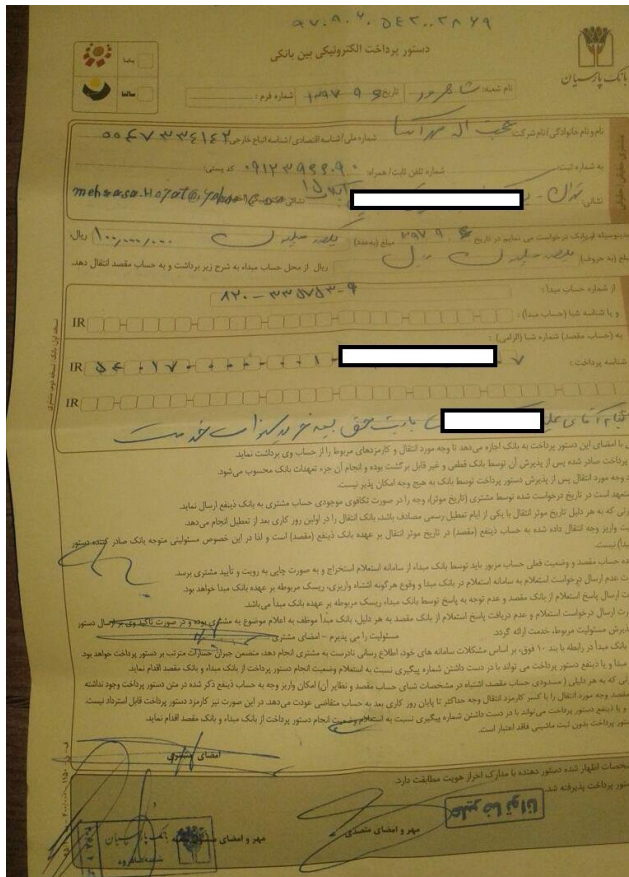 ۹۷۰۹۰۷۰۵۴۲۰۰۲۸۶۹
دستور پرداخت الکترونیکی بین بانکی
بانک پارسیان
پایا
ساتنا
نام شعبه: شاهرود تاریخ ۱۳۹۷ ۹ ۶ شماره فرم:
نام و نام خانوادگی/نام شرکت: حجت اله مهرآسا شماره ملی/شناسه اقتصادی/شناسه اتباع خارجی:
به شماره ثبت: شماره تلفن ثابت/همراه: کد پستی:
نشانی: تهران
بدینوسیله درخواست می نمایم در تاریخ ۹۷ ۹ ۶ مبلغ (به عدد) ۱۰۰,۰۰۰,۰۰۰ ریال،
مبلغ (به حروف) یکصد میلیون ریال ریال از محل حساب مبداء به شرح زیر برداشت و به حساب مقصد انتقال دهد.
از شماره حساب مبدا: ۸۲۰-۳۳۵۷۵۳-۹
و یا شناسه شبا (حساب مبدا): IR
به (حساب مقصد) شماره شبا (الزامی):
IR
شناسه پرداخت:
IR
بنام آقای بابت حق بیمه خرید خدمت
با امضای این دستور پرداخت به بانک اجازه می‌دهد تا وجه مورد انتقال و کارمزدهای مربوط را از حساب وی برداشت نماید.
پرداخت صادر شده پس از پذیرش آن توسط بانک قطعی و غیر قابل برگشت بوده و انجام آن جزء تعهدات بانک محسوب می‌شود.
وجه مورد انتقال پس از پذیرش دستور پرداخت توسط بانک به هیچ وجه امکان پذیر نیست.
متعهد است در تاریخ درخواست شده توسط مشتری (تاریخ موثر)، وجه را در صورت تکافوی موجودی حساب مشتری به بانک ذینفع ارسال نماید.
که به هر دلیل تاریخ موثر انتقال با یکی از ایام تعطیل رسمی مصادف باشد، بانک انتقال را در اولین روز کاری بعد از تعطیل انجام می‌دهد.
واریز وجه انتقال داده شده به حساب ذینفع (مقصد) در تاریخ موثر انتقال بر عهده بانک ذینفع (مقصد) است و لذا در این خصوص مسئولیتی متوجه بانک صادر کننده دستور
نیست.
حساب مقصد و وضعیت فعلی حساب مزبور باید توسط بانک مبداء از سامانه استعلام استخراج و به صورت چاپی به رویت و تأیید مشتری برسد.
عدم ارسال درخواست استعلام به سامانه استعلام در بانک مبدا و وقوع هرگونه اشتباه واریزی، ریسک مربوطه بر عهده بانک مبدا خواهد بود.
ارسال پاسخ استعلام از بانک مقصد و عدم توجه به پاسخ توسط بانک مبداء ریسک مربوطه بر عهده بانک مبدأ می‌باشد.
ارسال درخواست استعلام و عدم دریافت پاسخ استعلام از بانک مقصد به هر دلیل، بانک مبدا موظف به اعلام موضوع به مشتری بوده و در صورت تاکید وی بر ارسال دستور
پذیرش مسئولیت مربوط، خدمت ارائه گردد. مسئولیت را می پذیرم - امضای مشتری
بانک مبدأ در رابطه با بند ۱۰ فوق، بر اساس مشکلات سامانه های خود، اطلاع رسانی نادرست به مشتری انجام دهد، متضمن جبران خسارات مترتب بر دستور پرداخت خواهد بود.
مبدا و یا ذینفع دستور پرداخت می تواند با در دست داشتن شماره پیگیری نسبت به استعلام وضعیت انجام دستور پرداخت از بانک مبداء و بانک مقصد اقدام نماید.
که به هر دلیلی (مسدودی حساب مقصد، اشتباه در مشخصات شبای حساب مقصد و نظایر آن) امکان واریز وجه به حساب ذینفع ذکر شده در متن دستور پرداخت وجود نداشته
مقصد وجه مورد انتقال را با کسر کارمزد انتقال وجه حداکثر تا پایان روز کاری بعد به حساب متقاضی عودت می‌دهد. در این صورت نیز کارمزد دستور پرداخت قابل استرداد نیست.
و یا ذینفع دستور پرداخت می‌تواند با در دست داشتن شماره پیگیری نسبت به استعلام وضعیت انجام دستور پرداخت از بانک مبدا و بانک مقصد اقدام نماید.
دستور پرداخت بدون ثبت ماشینی فاقد اعتبار است.
امضای مشتری
مشخصات اظهار شده دستور دهنده با مدارک احراز هویت مطابقت دارد.
دستور پرداخت پذیرفته شد.
علیرضا توانا
مهر و امضای متصدی
مهر و امضای
بانک پارسیان
شعبه شاهرود